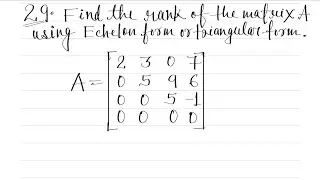 29. Find the rank of the matrix A
using Echelon form or triangular form.
2 3 0 7
A = 0 5 9 6
0 0 5 -1
0 0 0 0